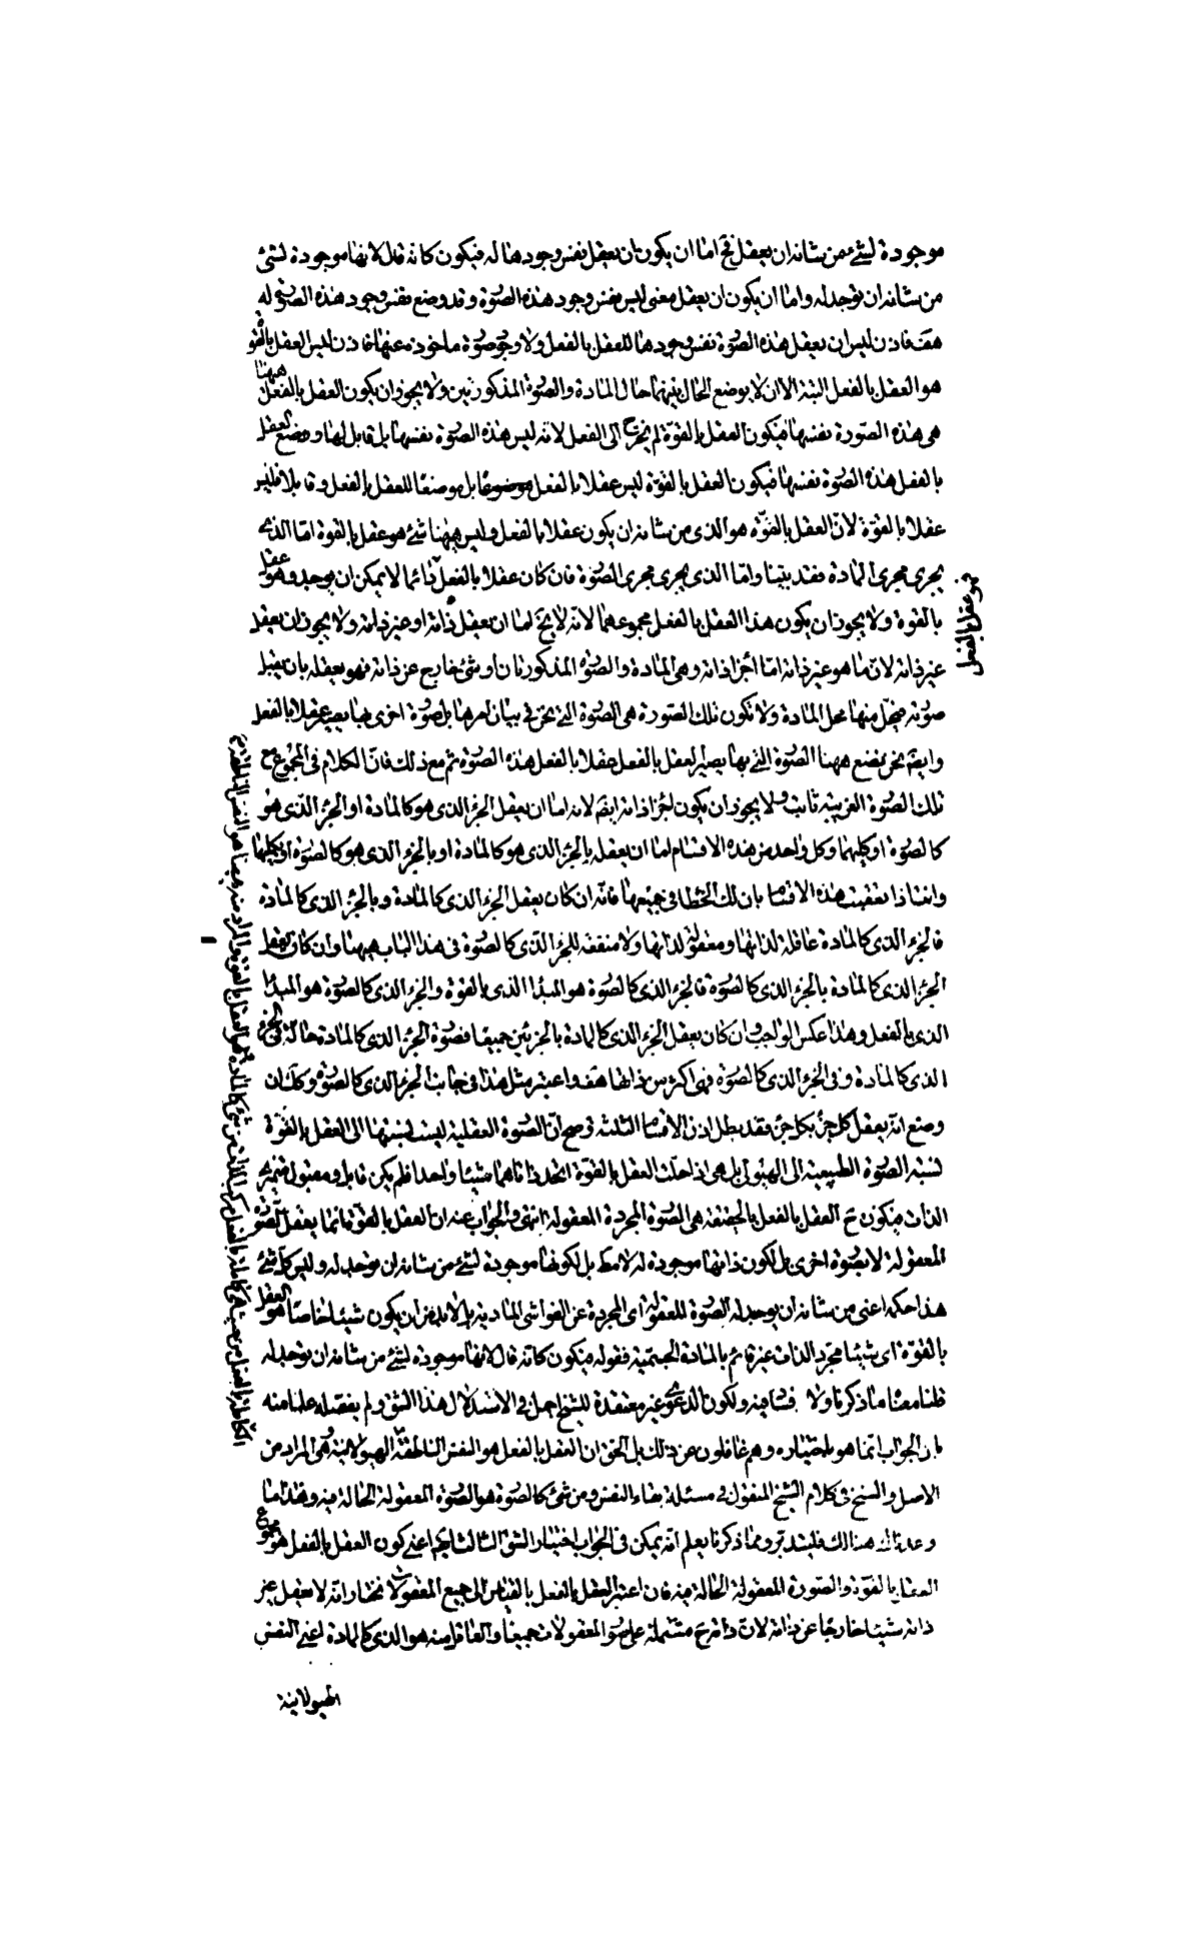 موجودة لشئ من شانه ان يعقل فح اما ان يكون ان يعقل نفس وجودها له فيكون كانه قال لانها موجودة لشئ
من شانه ان توجد له واما ان يكون ان يعقل معنى ليس نفس وجود هذه الصورة وقد وضع نفس وجود هذه الصورة له
هف فاذن ليس ان يعقل هذه الصورة نفس وجودها للعقل بالفعل ولا وجود صورة ماخوذة عنها فاذن ليس العقل بالقوة
هو العقل بالفعل البتة الا ان لا يوضع الحال بينهما حال المادة والصورة المذكورتين ولا يجوز ان يكون العقل بالفعل ههنا
هى هذه الصورة نفسها فيكون العقل بالقوة لم يخرج الى الفعل لانه ليس هذه الصورة نفسها بل قابل لها ووضع العقل
بالفعل هذه الصورة نفسها فيكون العقل بالقوة ليس عقلا بالفعل بل موضعا للعقل بالفعل وقابلا فليس
عقلا بالقوة لان العقل بالقوة هو الذى من شانه ان يكون عقلا بالفعل وليس ههنا شئ هو عقل بالقوة اما الذى
يجرى مجرى المادة فقد بينا واما الذى يجرى مجرى الصورة فان كان عقلا بالفعل دائما لا يمكن ان يوجد وهو عقل
بالقوة ولا يجوز ان يكون هذا العقل بالفعل مجموعهما لانه لا يخ اما ان يعقل ذاته او غير ذاته ولا يجوز ان يعقل
غير ذاته لان ما هو غير ذاته اما اجزا ذاته وهى المادة والصورة المذكورتان او شئ خارج عن ذاته فهو يعقله بان يقبل
صورته فيحل منها محل المادة ولا تكون تلك الصورة هى الصورة التى نحن فى بيان امرها بل صورة اخرى بها يصير عقلا بالفعل
وايضا نحن نضع ههنا الصورة التى بها يصير العقل بالفعل عقلا بالفعل هذه الصورة ثم مع ذلك فان الكلام فى المجموع مع
تلك الصورة الغريبة ثابت ولا يجوز ان يكون اجزا ذاته ايضا لانه اما ان يعقل الجزء الذى هو كالمادة او الجزء الذى هو
كالصورة او كليهما وكل واحد من هذه الاقسام اما ان يعقله بالجزء الذى هو كالمادة او بالجزء الذى هو كالصورة او بكليهما
وانت اذا تعقبت هذه الاقسام بان لك الخطا فى جميعها فانه ان كان يعقل الجزء الذى كالمادة وبالجزء الذى كالمادة
فالجزء الذى كالمادة عاقلة لذاتها ومعقولة لذاتها ولا منفعة للجزء الذى كالصورة فى هذا الباب ههنا وان كان يعقل
الجزء الذى كالمادة بالجزء الذى كالصورة فالجزء الذى كالصورة هو المبدأ الذى بالقوة والجزء الذى كالصورة هو المبدأ
الذى بالفعل وهذا عكس الواجب وان كان يعقل الجزء الذى كالمادة بالجزئين جميعا فصورة الجزء الذى كالمادة حالة فى الجزء
الذى كالمادة وفى الجزء الذى كالصورة فهى اكبر من ذاتها هف واعتبر مثل هذا فى جانب الجزء الذى كالصورة وكك ان
وضع انه يعقل كل جزء بكل جزء فقد بطل اذن الاقسام الثلثة وصح ان الصورة العقلية ليست نسبتها الى العقل بالقوة
نسبة الصورة الطبيعية الى الهيولى بل هى اذا حلت العقل بالقوة اتحد ذاتاهما شيئا واحدا فلم يكن قابل ومقبول متميزى
الذات فيكون ح العقل بالفعل بالحقيقة هى الصورة المجردة المعقولة انتهى والجواب عنه ان العقل بالقوة انما يعقل الصورة
المعقولة لا بصورة اخرى بل لكون ذاتها موجودة له لا مط بل لكونها موجودة لشئ من شانه ان توجد له وليس كل شئ
هذا حكمه اعنى من شانه ان يوجد له الصورة المعقولة اى المجردة عن الغواشى المادية بل لابد من ان يكون شيئا خاصا هو العقل
بالقوة اى شيئا مجرد الذات غير قائم بالمادة الجسمية فقوله فيكون كانه قال لانها موجودة لشئ من شانه ان توجد له
قلنا معنا ما ذكرنا ولا فساد فيه ولكون الدعوى غير معتقدة للشيخ اجمل فى الاستدلال لهذا الشق ولم يفصله علما منه
بان الجواب انما هو باختياره وهم غافلون عن ذلك بل الحق ان العقل بالفعل هو النفس الناطقة الهيولانية وهى المراد من
الاصل والسنخ فى كلام الشيخ المنقول فى مسئلة بقاء النفس ومن شئ كالصورة هو الصورة المعقولة الحالة فيه وهذا ما
وعدناك هنالك فليتدبر ومما ذكرنا يعلم انه يمكن فى الجواب اختيار الشق الثالث ايضا اعنى كون العقل بالفعل هو مجموع
العقل بالقوة والصورة المعقولة الحالة فيه فان اعتبر العقل بالفعل بالقياس الى جميع المعقولات نختار انه لا يعقل غير
ذاته شيئا خارجا عن ذاته لان ذاته ح مشتملة على صور المعقولات جميعا والعاقل منه هو الذى كالمادة اعنى النفس
الهيولانية
هو عقل بالفعل